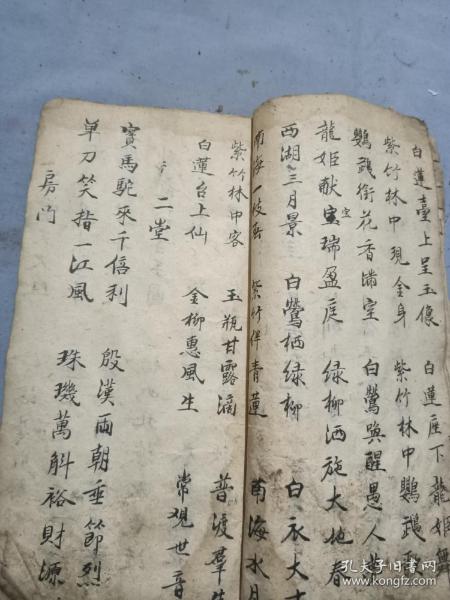 白蓮臺上呈玉像 白蓮座下龍姬
紫竹林中現金身 紫竹林中鸚鵡
鸚鵡銜花香滿室 白鶯喚醒愚人
龍姬献宝瑞盈庭 绿柳洒施大地春
西湖三月景 白鶯栖绿柳 白衣大士
南海一枝 紫竹伴青蓮 南海水月
紫竹林中客 玉瓶甘露滴 普渡羣生
白蓮台上仙 金柳惠風生 常觀世音
二堂
寶馬駝來千倍利 殷漢兩朝垂節烈
单刀笑指一江風 珠璣萬斛裕財源
房门
孔夫子旧书网